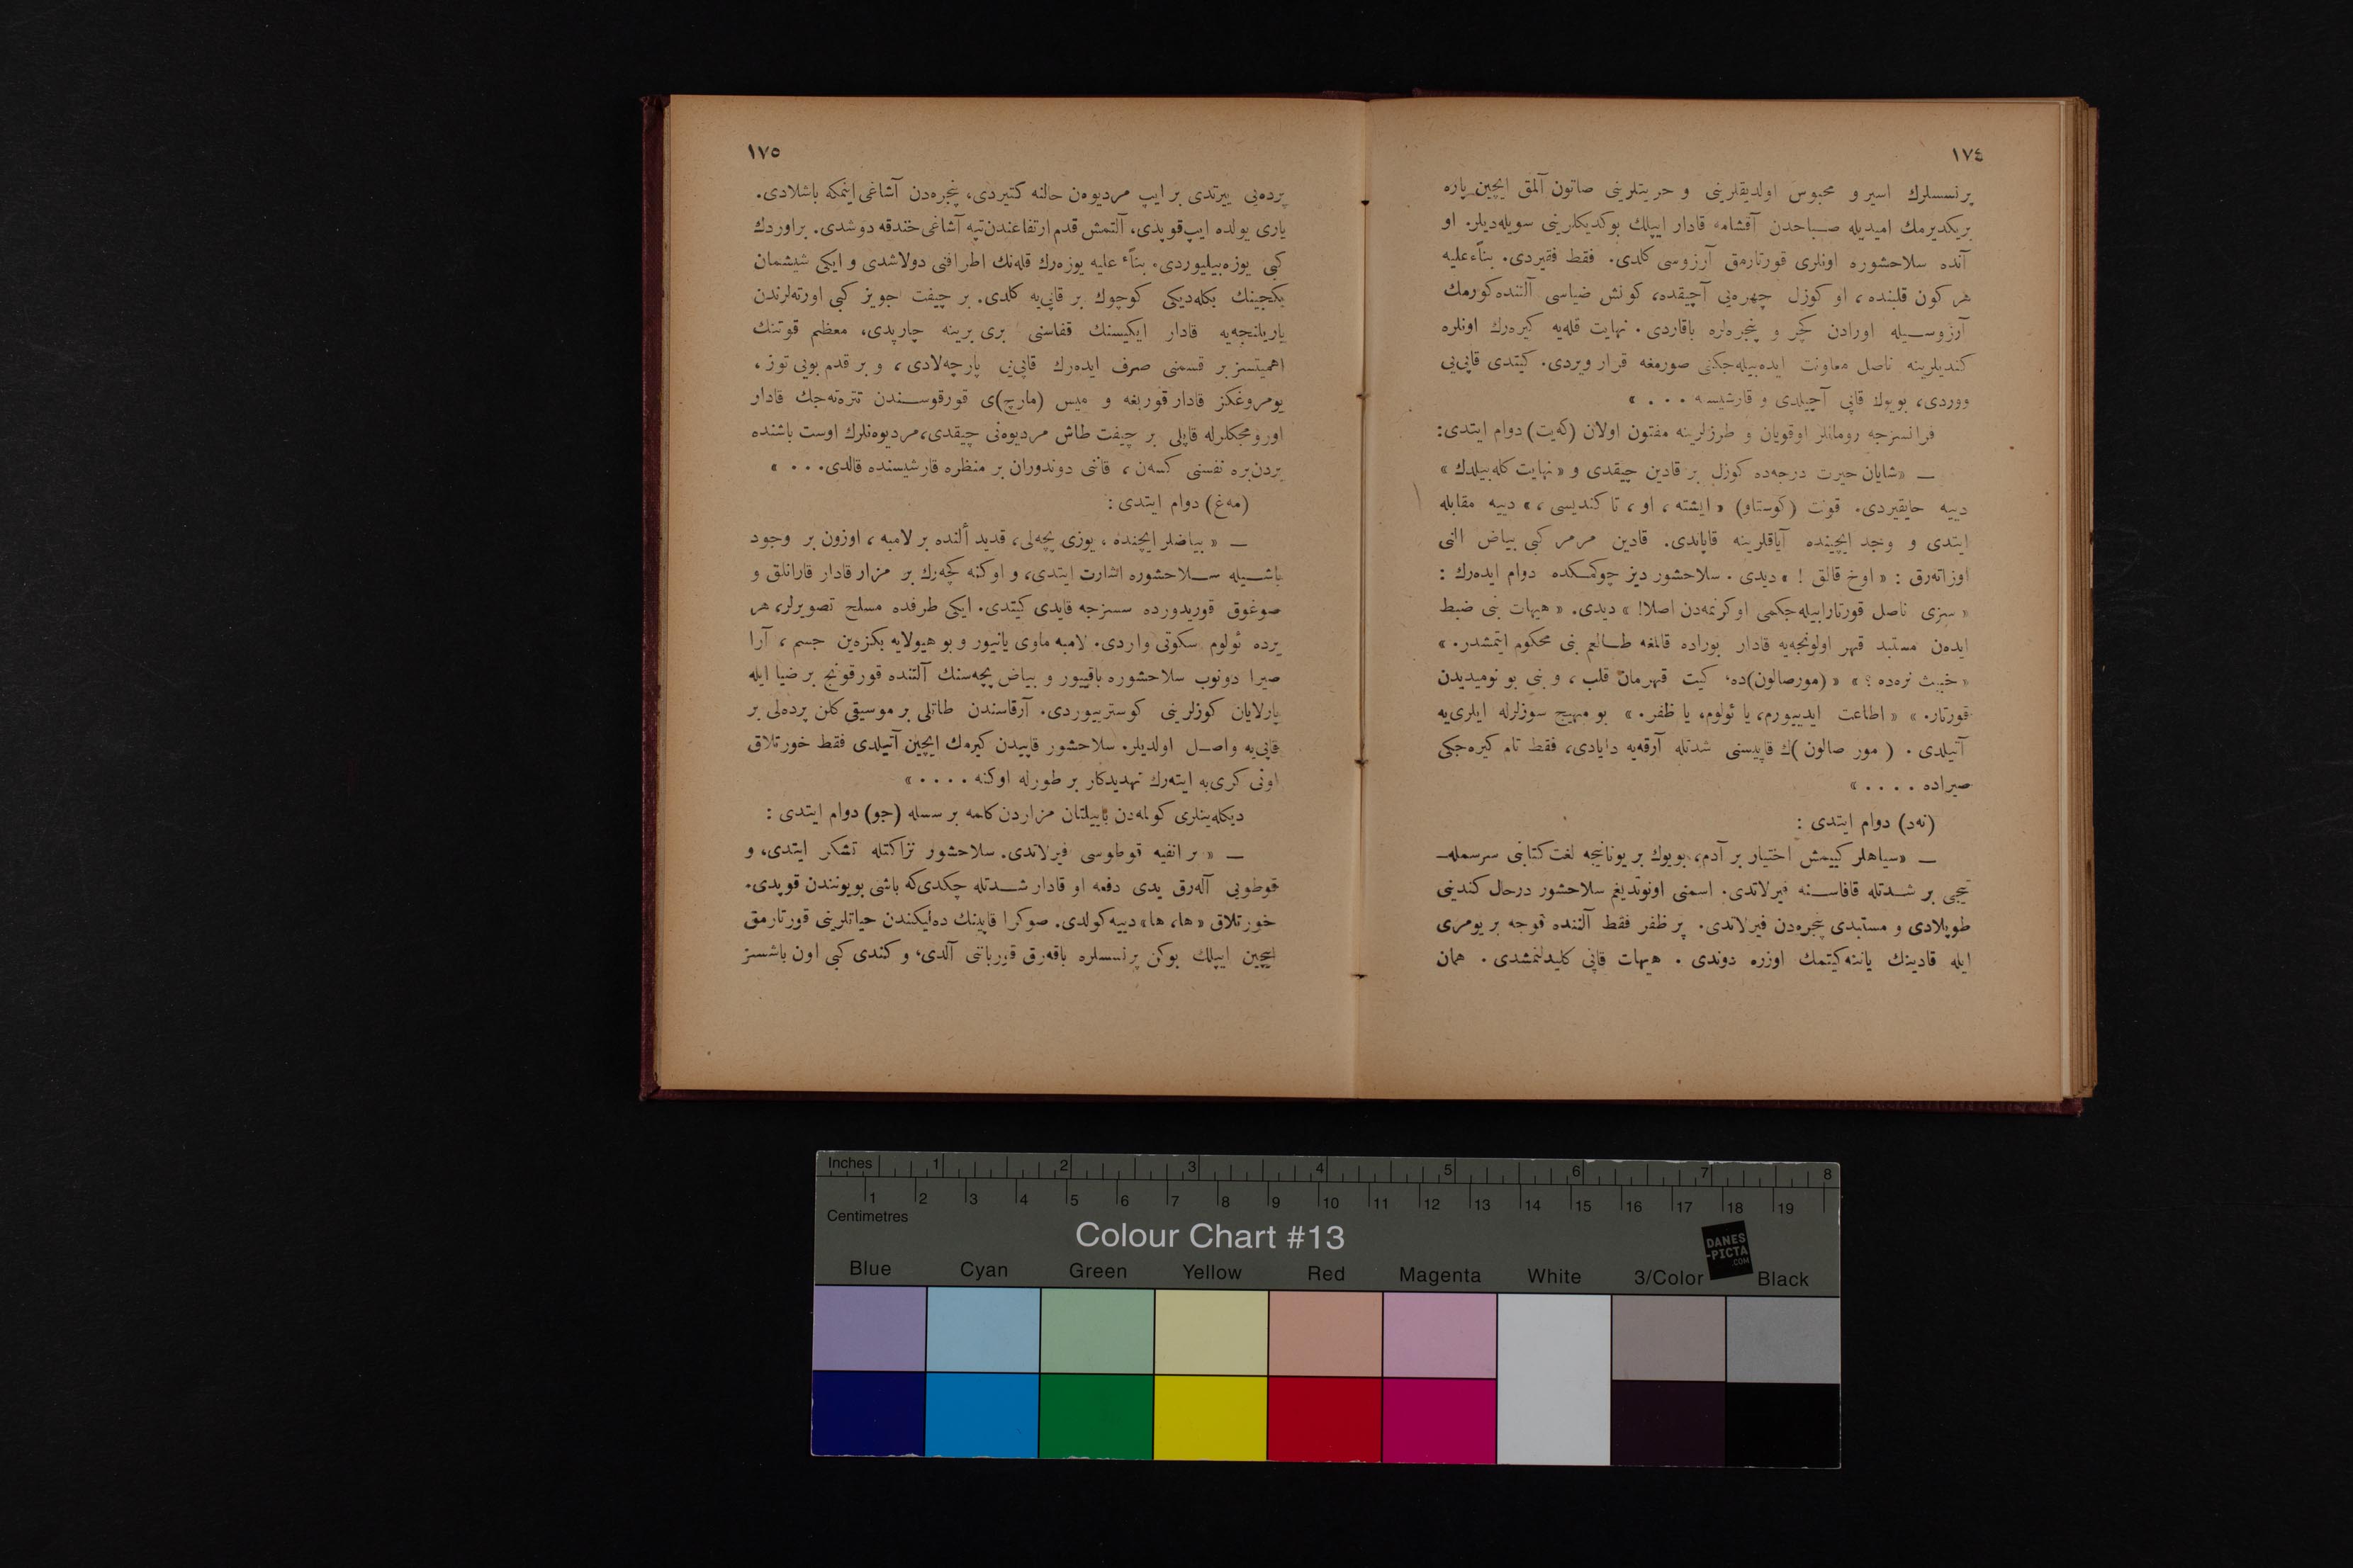 ١٧٤
پرنسسلرك اسير و محبوس اولديقلرينی و حريتلرينی صاتون آلمق ايچين پاره
بريكديرمك اميديله صباحدن آقشامه قادار ايپلك بوكديكلرينی سويله‌ديلر. او
آنده سلاحشوره اونلری قورتارمق آرزوسی كلدی. فقط فقيردی. بناءً عليه
هر كون قلبنده، او كوزل چهره‌يی آچيقده، كونش ضياسی آلتنده كورمك
آرزوسيله اورادن كچر و پنجره‌لره باقاردی. نهايت قله‌يه كيره‌رك اونلره
كنديلرينه ناصل معاونت ايده‌بيله‌جكنی صورمغه قرار ويردی. كيتدی قاپی‌يی
ووردی، بويوك قاپی آچيلدی و قارشيسنه . . . »
فرانسزجه رومانلر اوقويان و طرزلرينه مفتون اولان (كه‌يت) دوام ايتدی:
— «شايان حيرت درجه‌ده كوزل بر قادين چيقدی و « نهايت كله‌بيلدك »
دييه حايقيردی. قونت (كوستاو) « ايشته ، او ، تا كنديسی ، » دييه مقابله
ايتدی و وجد ايچينده آياقلرينه قاپاندی. قادين مرمر كبی بياض النی
اوزاته‌رق : « اوخ قالق ! » ديدی . سلاحشور ديز چوكمكده دوام ايده‌رك :
« سزی ناصل قورتارابيله‌جكمی اوكرنمه‌دن اصلا! » ديدی. « هيهات بنی ضبط
ايده‌ن مستبد قهر اولونجه‌يه قادار بوراده قالمغه طالعم بنی محكوم ايتمشدر. »
« خبيث نره‌ده ؟ » « (مورصالون)ده، كيت قهرمان قلب ، و بنی بو نوميديدن
قورتار. » « اطاعت ايدييورم، يا ئولوم، يا ظفر. » بو مهيج سوزلرله ايلری‌يه
آتيلدی . ( مور صالون )ك قاپيسنی شدتله آرقه‌يه دايادی، فقط تام كيره‌جكی
صيراده . . . . »
(نه‌د) دوام ايتدی :
— «سياهلر كييمش اختيار بر آدم، بويوك بر يونانيجه لغت كتابنی سرسمله-
تيجی بر شدتله قافاسنه فيرلاتدی. اسمنی اونوتديغم سلاحشور درحال كندينی
طوپلادی و مستبدی پنجره‌دن فيرلاتدی. پر ظفر فقط آلننده قوجه بر يومری
ايله قادينك يانه كيتمك اوزره دوندی . هيهات قاپی كليدلنمشدی . همان
١٧٥
پرده‌يی ييرتدی بر ايپ مرديوه‌ن حالنه كتيردی، پنجره‌دن آشاغی اينمكه باشلادی.
ياری يولده ايپ قوپدی، آلتمش قدم ارتفاعندن تپه آشاغی خندقه دوشدی. بر اوردك
كبی يوزه‌بيليوردی. بناءً عليه يوزه‌رك قله‌نك اطرافنی دولاشدی و ايكی شيشمان
بكجينك بكله‌ديكی كوچوك بر قاپی‌يه كلدی. بر چيفت جويز كبی اورته‌لرندن
ياريلنجه‌يه قادار ايكيسنك قفاسنی بری برينه چارپدی، معظم قوتنك
اهميتسز بر قسمنی صرف ايده‌رك قاپی‌يی پارچه‌لادی ، و بر قدم بويی توز ،
يومروغكز قادار قوربغه و ميس (مارچ)ی قورقوسندن تتره‌ته‌جك قادار
اورومجكلرله قاپلی بر چيفت طاش مرديوه‌نی چيقدی، مرديوه‌نلرك اوست باشنده
بردن‌بره نفسنی كسه‌ن ، قاننی دوندوران بر منظره قارشيسنده قالدی. . . »
(مه‌غ) دوام ايتدی :
— « بياضلر ايچنده ، يوزی پچه‌لی، قديد ألنده بر لامبه ، اوزون بر وجود
باشيله سلاحشوره اشارت ايتدی، و اوكنه كچه‌رك بر مزار قادار قارانلق و
صوغوق قوريدورده سسزجه قايدی كيتدی. ايكی طرفده مسلح تصويرلر، هر
يرده ئولوم سكوتی واردی. لامبه ماوی يانييور و بو هيولايه بكزه‌ين جسم ، آرا
صيرا دونوب سلاحشوره باقييور و بياض پچه‌سنك آلتنده قورقونج بر ضيا ايله
پارلايان كوزلرينی كوستريیوردی. آرقاسندن طاتلی بر موسيقی كلن پرده‌لی بر
قاپی‌يه واصل اولديلر. سلاحشور قاپيدن كيرمك ايچين آتيلدی فقط خورتلاق
اونی كری‌يه ايته‌رك تهديدكار بر طورله اوكنه . . . . »
ديكله‌ينلری كولمه‌دن باييلتان مزاردن كلمه بر سسله (جو) دوام ايتدی :
— « بر انفيه قوطوسی فيرلاتدی. سلاحشور نزاكتله تشكر ايتدی، و
قوطويی آله‌رق يدی دفعه او قادار شدتله چكدی كه باشی بويونندن قوپدی.
خورتلاق « ها، ها» دييه كولدی. صوكرا قاپينك ده‌ليكندن حياتلرينی قورتارمق
ايچين ايپلك بوكن پرنسسلره باقه‌رق قوربانی آلدی، و كندی كبی اون باشسز
Inches 1 2 3 4 5 6 7 8
1 2 3 4 5 6 7 8 9 10 11 12 13 14 15 16 17 18 19
Centimetres
Colour Chart #13
DANES
-PICTA
.COM
Blue Cyan Green Yellow Red Magenta White 3/Color Black